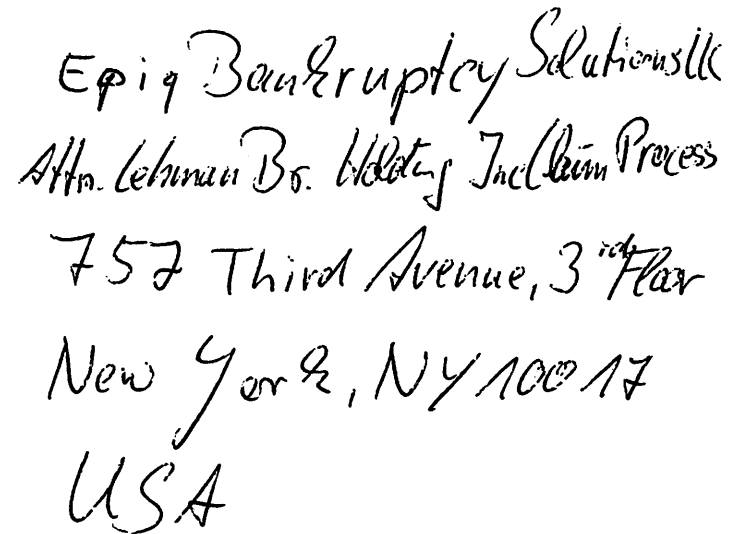 Epiq Bankruptcy Solutions LLC
Attn. Lehman Br. Holding Inc Claim Process
757 Third Avenue, 3rd Floor
New York, NY 10017
USA